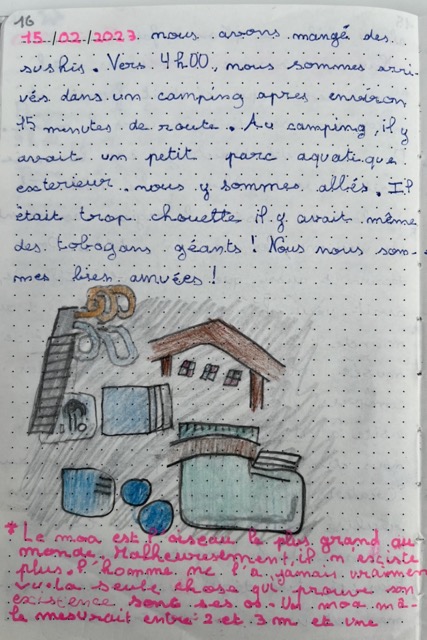 16
15/02/2023 nous avons mangé des
sushis. Vers 4h00, nous sommes arri-
vés dans un camping apres environ
15 minutes de route. Au camping, il y
avait un petit parc aquatique
exterieur. nous y sommes allés. Il
était trop chouette il y avait même
des tobogans géants! Nous nous som-
mes bien amusées!
* Le moa est l'oiseau le plus grand au
monde. Malheureusement, il n'existe
plus. l'homme ne l'a jamais vraiment
vu. La seule chose qui prouve son
existence sont ses os. Un moa mâ-
le mesurait entre 2 et 3 m et une